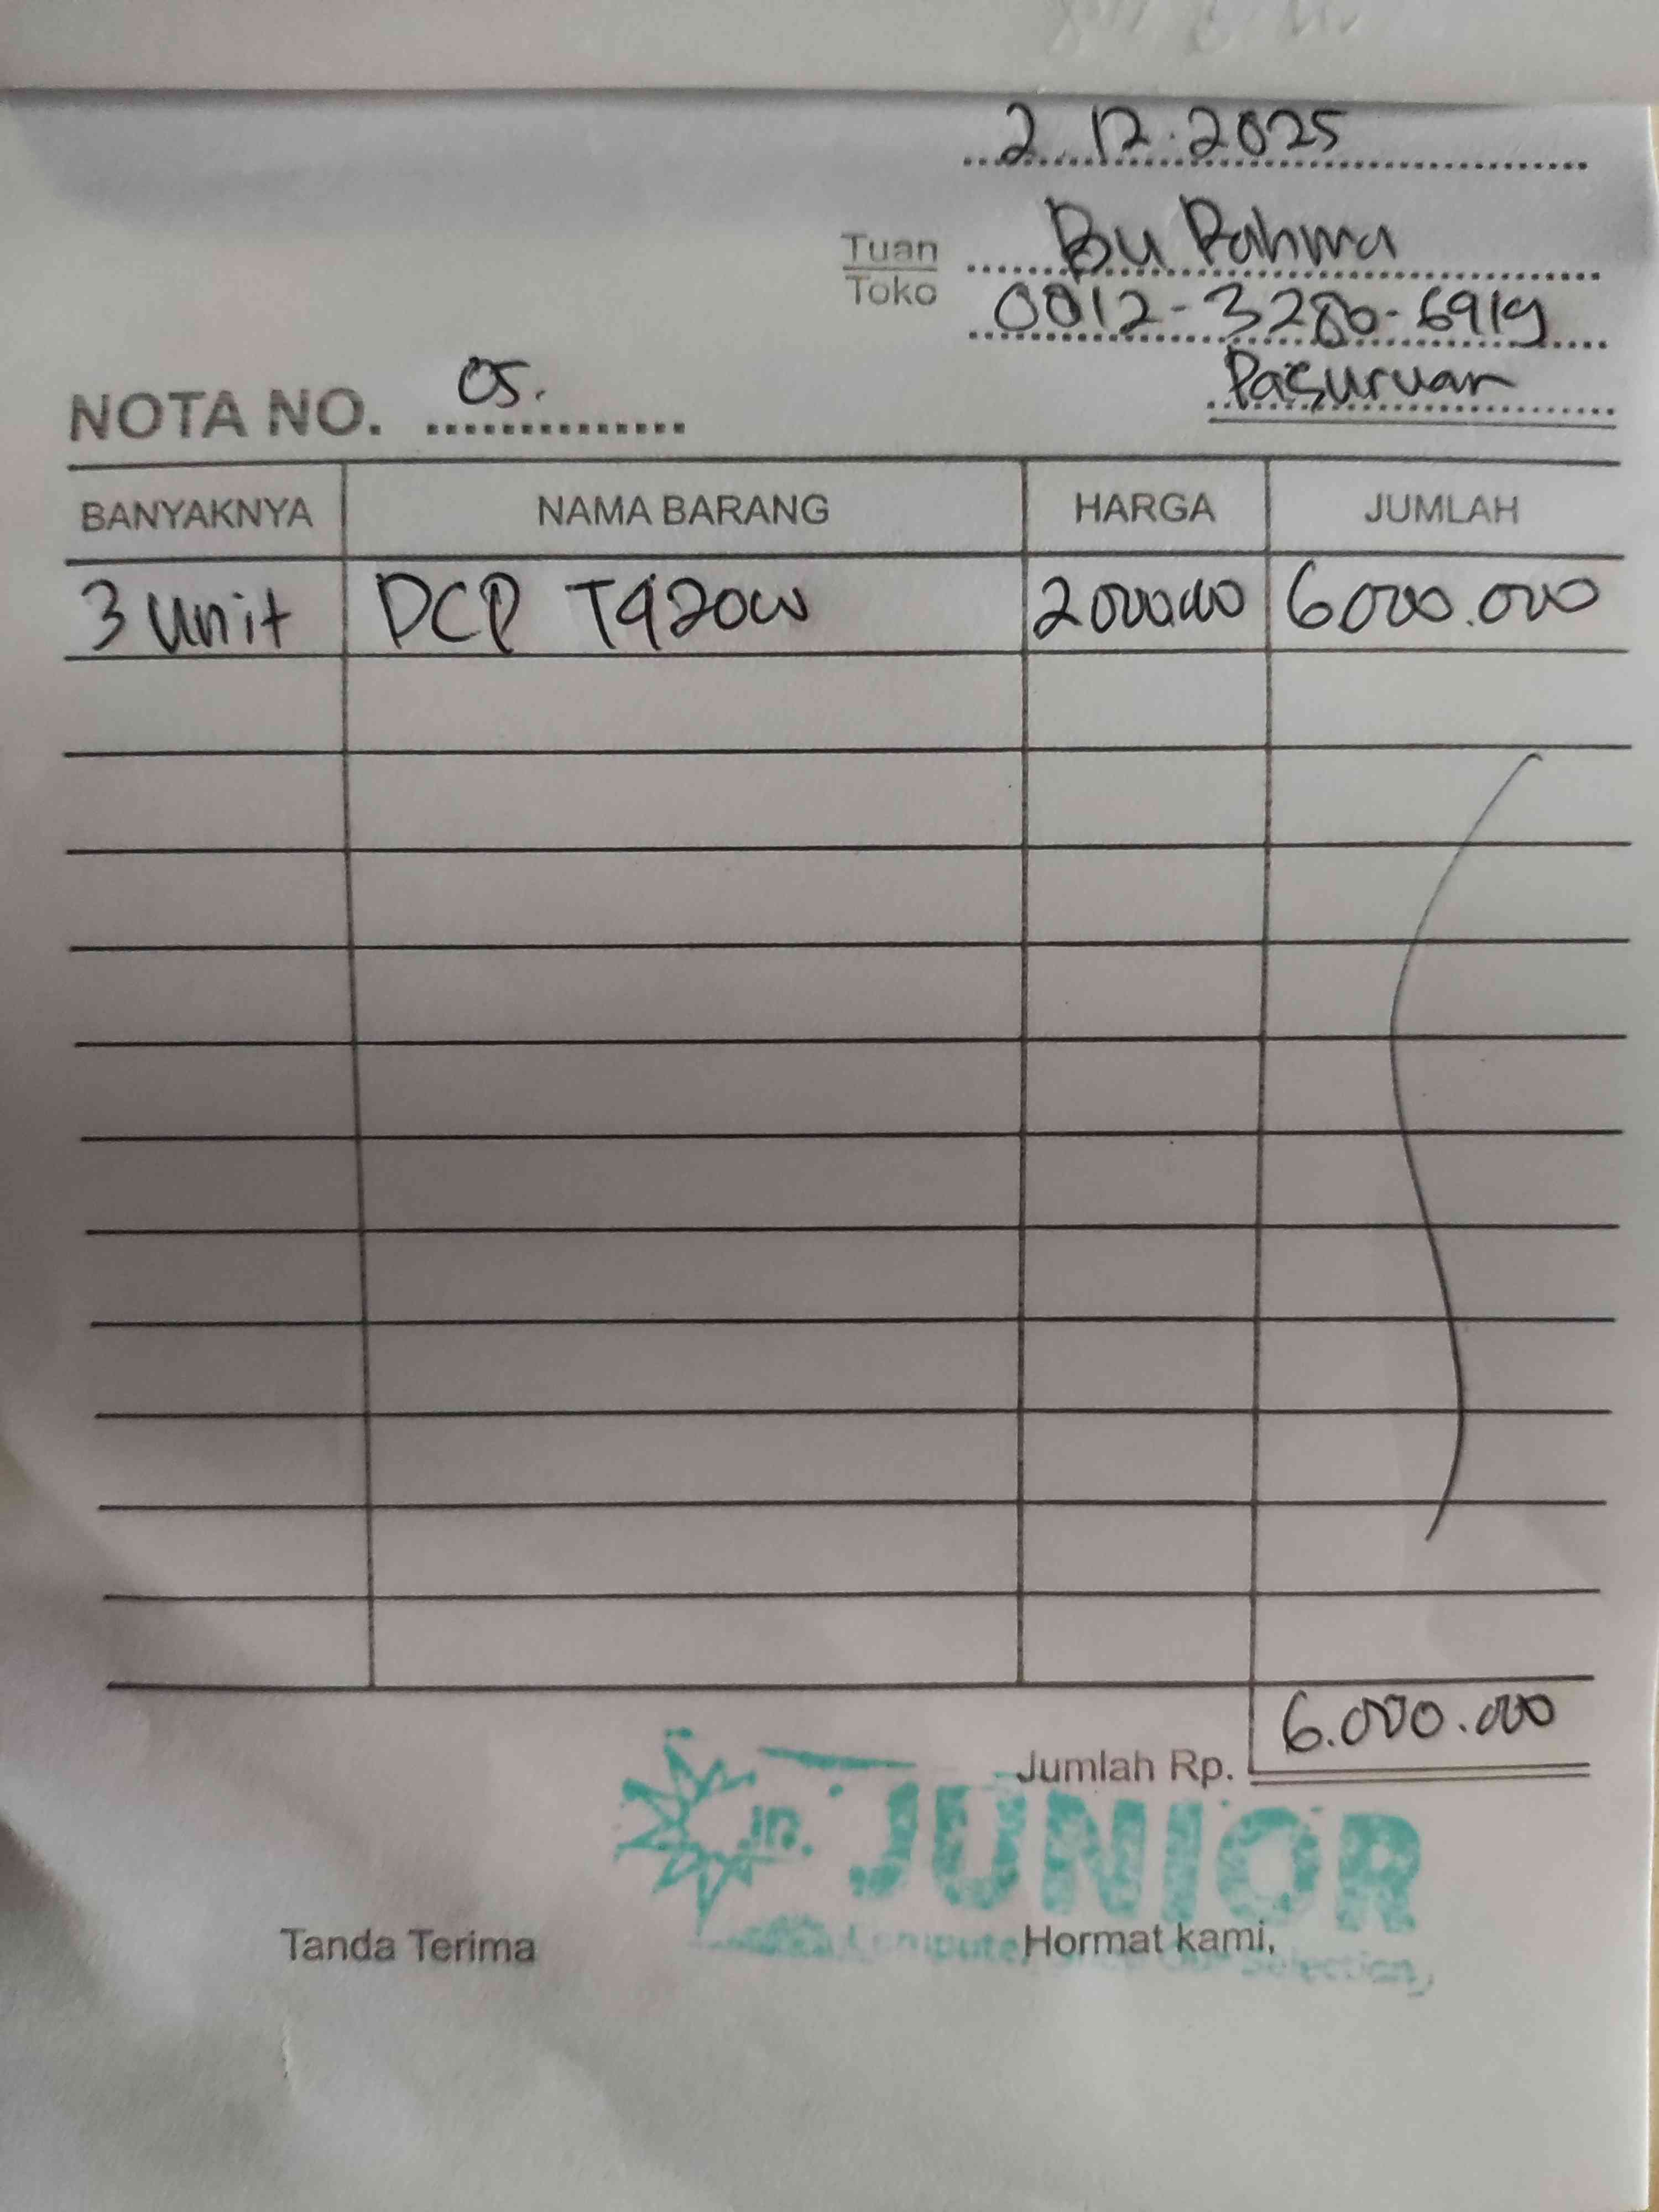 2.12.2025
Tuan
Toko
Bu Rahma
0812-3280-6919
Pasuruan
NOTA NO. 05.
BANYAKNYA NAMA BARANG HARGA JUMLAH
3 Unit DCP T920W 2000.000 6000.000
Jumlah Rp. 6.000.000
JUNIOR
Tanda Terima Hormat kami,
Selection